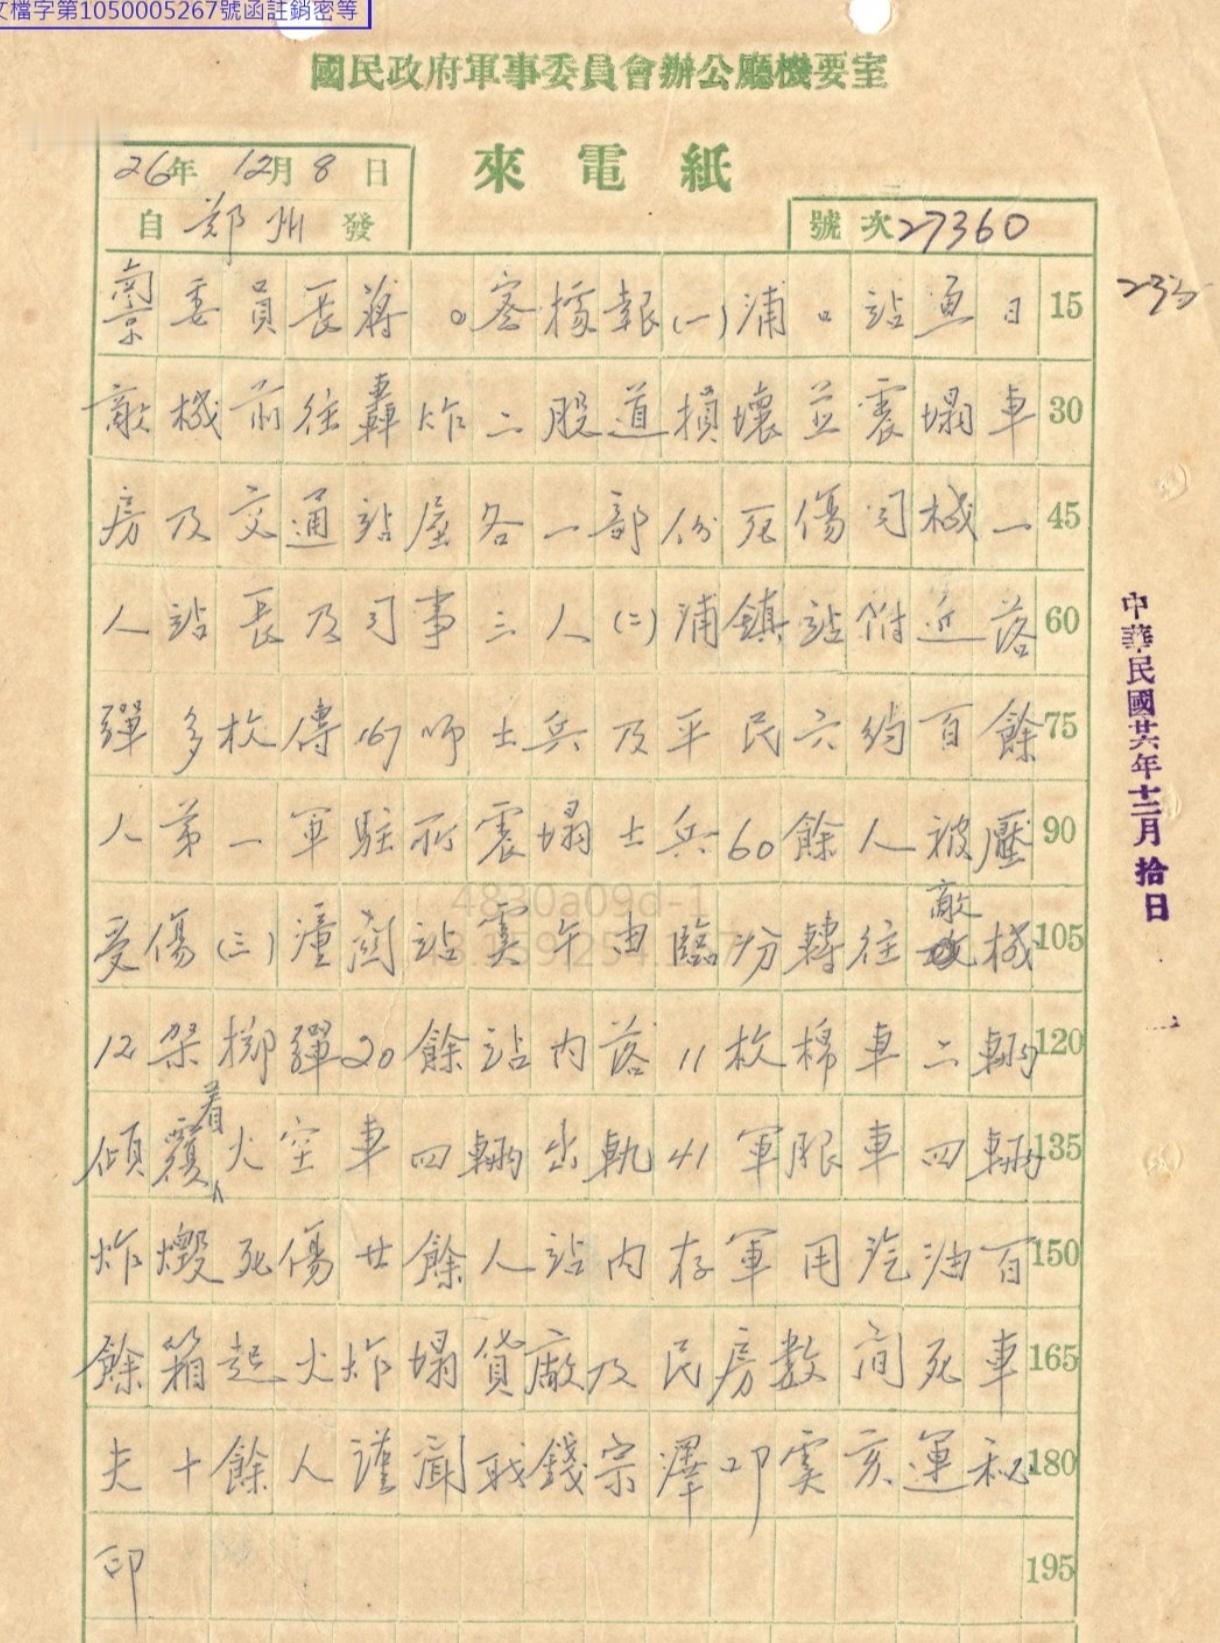 文檔字第1050005267號函註銷密等
國民政府軍事委員會辦公廳機要室
來電紙
26年12月8日
自鄭州發
號次27360
南京委員長蔣。密據報(一)浦口站連日15
敵機前往轟炸二股道損壞並震塌車30
房及交通站屋各一部份死傷司機一45
人站長及司事三人(二)浦鎮站附近落60
彈多枚傳167師士兵及平民六約百餘75
人第一軍駐所震塌士兵60餘人被壓90
受傷(三)潼關站虞午由臨汾轉往敵機105
12架擲彈20餘站內落11枚棉車二輛120
傾覆着火空車四輛出軌41軍服車四輛135
炸燬死傷廿餘人站內存軍用汽油百150
餘箱起火炸塌貨廠及民房數間死車165
夫十餘人謹聞職錢宗澤叩虞亥運秘180
印195
中華民國廿六年十二月拾日